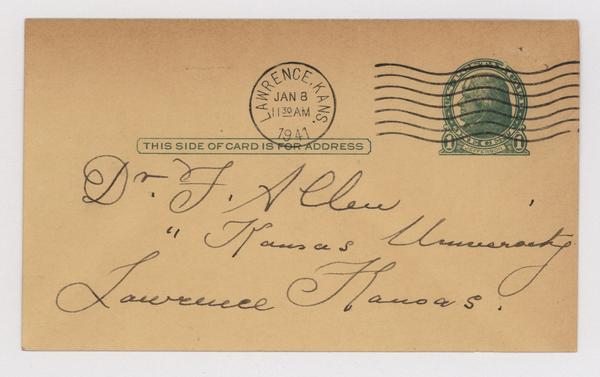 LAWRENCE, KANS.
JAN 8
11 30 AM
1941
THIS SIDE OF CARD IS FOR ADDRESS
1 JEFFERSON 1
Dr. F. Allen
" Kansas University
Lawrence Kansas.